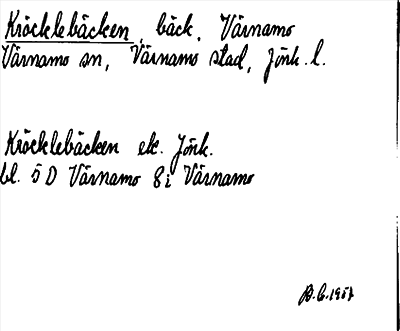 Kröcklebäcken, bäck, Värnamo
Värnamo sn, Värnamo stad, Jönk. l.
Kröcklebäcken ek. Jönk.
bl. 5 D Värnamo 8i Värnamo
B.G. 1957